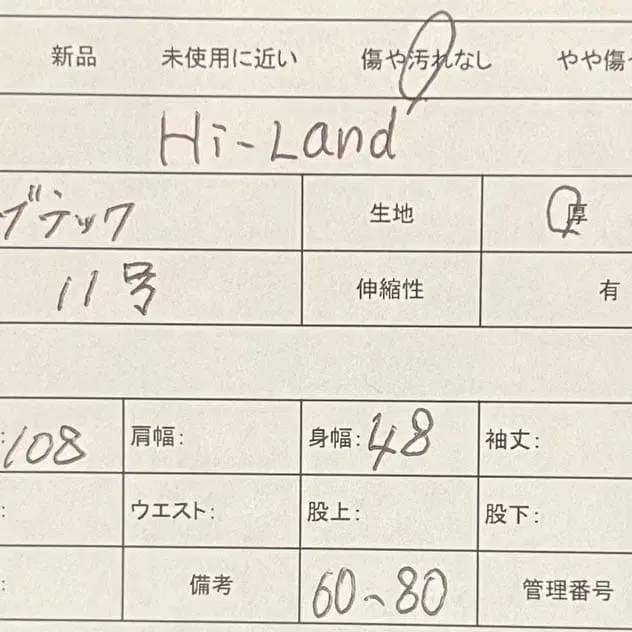 新品 未使用に近い 傷や汚れなし やや傷
Hi-Land
ブラック 生地 厚
11号 伸縮性 有
:108 肩幅: 身幅:48 袖丈:
: ウエスト: 股上: 股下:
: 備考 60~80 管理番号